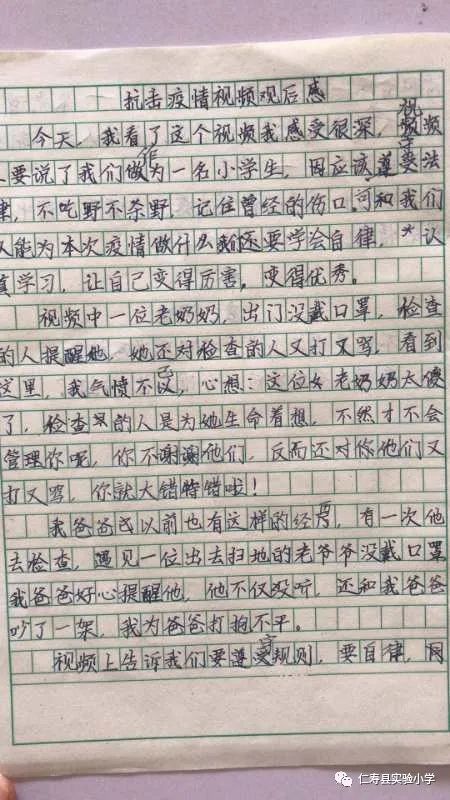 抗击疫情视频观后感
今天,我看了这个视频我感受很深,视频
要说了我们作为一名小学生,因应该遵守法
律,不吃野不杀野,记住曾经的伤口,可和我们
人能为本次疫情做什么我们还要学会自律,认
真学习,让自己变得厉害,变得优秀。
视频中一位老奶奶,出门没戴口罩,检查
的人提醒她,她还对检查的人又打又骂,看到
这里,我气愤不已,心想:这位老奶奶太傻
了,检查的人是为她生命着想,不然才不会
管理你呢,你不谢谢他们,反而还对他们又
打又骂,你就大错特错啦!
我爸爸以前也有这样的经历,有一次他
去检查,遇见一位出去扫地的老爷爷没戴口罩
我爸爸好心提醒他,他不仅没听,还和我爸爸
吵了一架,我为爸爸打抱不平。
视频上告诉我们要遵守规则,要自律,同
仁寿县实验小学